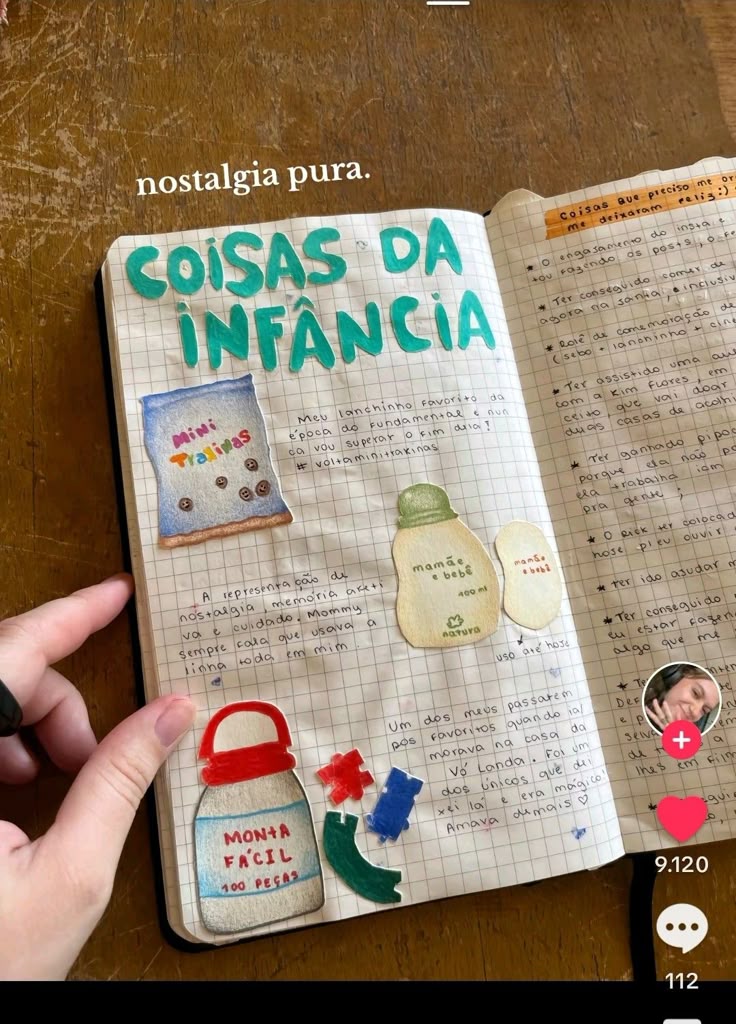 nostalgia pura.
COISAS DA
INFÂNCIA
MINI
TRAKINAS
Meu lanchinho favorito da
época do fundamental e nun
ca vou superar o fim dela!
# voltaminitrakinas
mamãe
e bebê
400 ml
natura
mamãe
e bebê
uso até hoje
A representação de
nostalgia, memória afeti
va e cuidado. Mommy
sempre fala que usava a
linha toda em mim
MONTA
FÁCIL
100 PEÇAS
Um dos meus passatem
pos favoritos quando ia/
morava na casa da
Vó Landa. Foi um
dos únicos que dei
xei lá e era mágico!
Amava demais ♡
Coisas que preciso me or
me deixaram feliz :)
★ O engajamento do insta e
tou fazendo os posts, o fe
★ Ter conseguido comer de
agora na janta, e inclusiv
★ Rolê de comemoração de
(sebo + lanchinho + cine
★ Ter assistido uma au
com a Kim Flores, em
ceito que vai doar
duas casas de acolh
★ Ter ganhado pipo
porque ela não po
ela trabalha
pra gente ;
★ O Rick ter colocad
hoje p/ eu ouvir
★ Ter ido ajudar m
★ Ter conseguido
eu estar fazen
algo que me
9.120
112